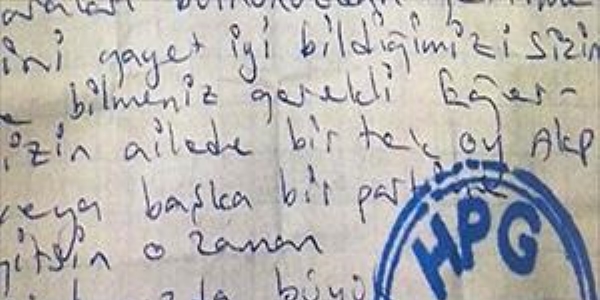 ini gayet iyi bildiğimizi sizin
bilmeniz gerekli Eğer-
izin ailede bir tek oy Akp
veya başka bir partiye
gitsin o zaman
HPG